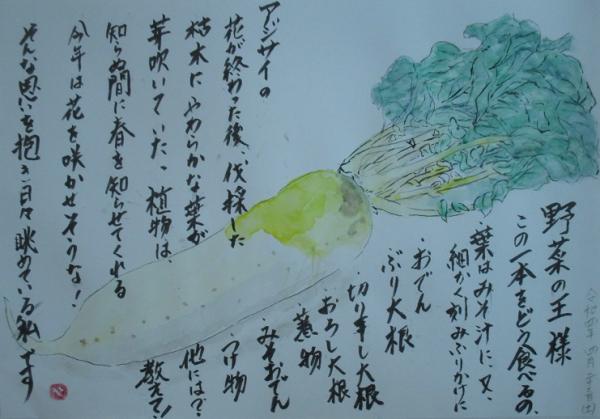 野菜の王様
この一本をどう食べるの
葉はみそ汁に、又、
細かく刻みふりかけに
・おでん
ぶり大根
・切り干し大根
おろし大根
・煮物
みそおでん
・つけ物
他には?
教えて!
アジサイの
花が終わった後、伐採した
枯木にやわらかな葉が
芽吹いていた。植物は、
知らぬ間に春を知らせてくれる
今年は花を咲かせそうな!
そんな思いを抱き日々眺めている私です